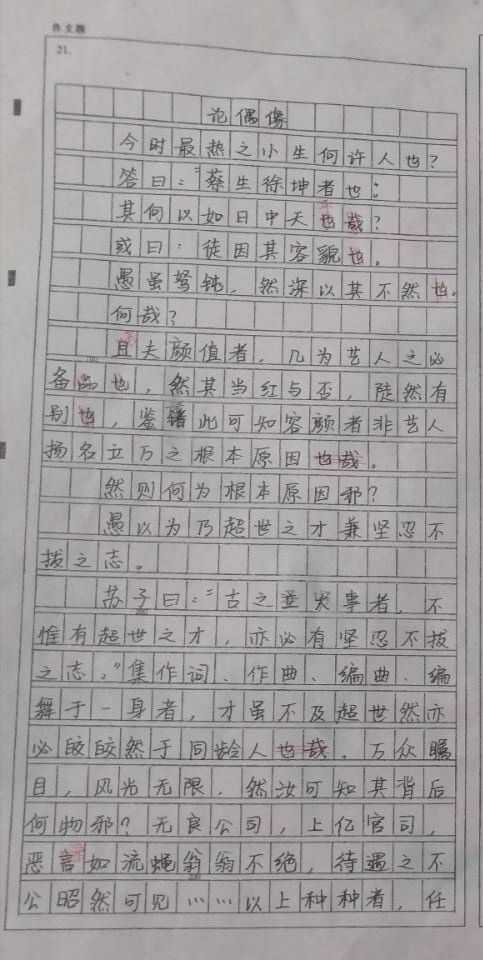 作文题
21.
论偶像
今时最热之小生何许人也？
答曰：“蔡生徐坤者也：
其何以如日中天也哉？
或曰：徒因其容貌也。
愚虽驽钝，然深以其不然也。
何哉？
且夫颜值者，几为艺人之必
备品也，然其当红与否，陡然有
别也，鉴诸此可知容颜者非艺人
扬名立万之根本原因也哉。
然则何为根本原因邪？
愚以为乃超世之才兼坚忍不
拔之志。
苏子曰：“古之立大事者，不
惟有超世之才，亦必有坚忍不拔
之志。”集作词、作曲、编曲、编
舞于一身者，才虽不及超世然亦
必皎皎然于同龄人也哉。万众瞩
目，风光无限，然汝可知其背后
何物邪？无良公司，上亿官司，
恶言如流蝇翁翁不绝，待遇之不
公昭然可见……以上种种者，任